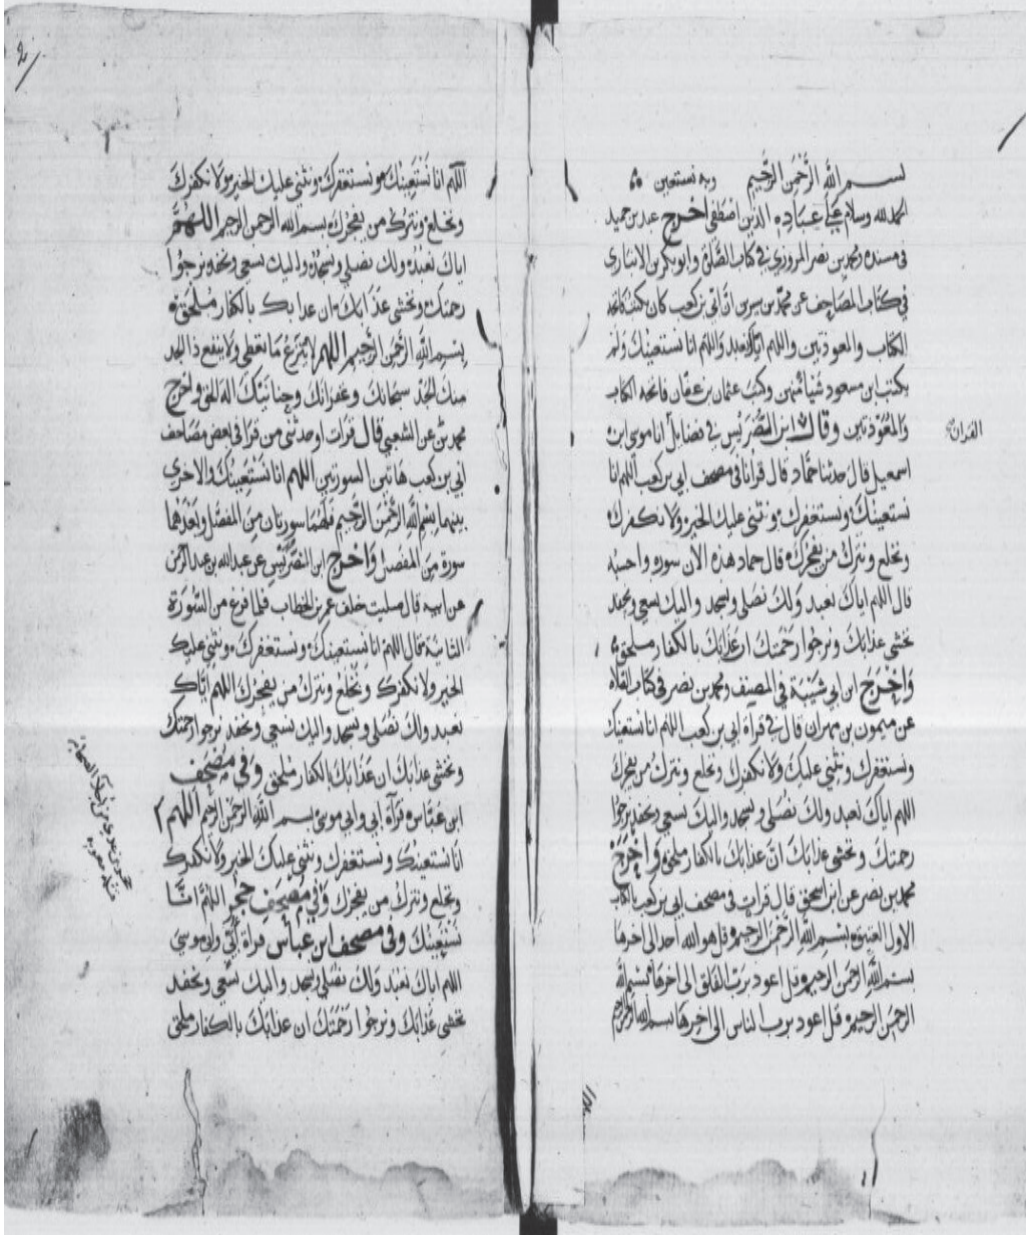 بسم الله الرحمن الرحيم وبه نستعين
الحمد لله وسلام على عباده الذين اصطفى اخرج عبد بن حميد
في مسنده ومحمد بن نصر المروزي في كتاب الصلاة وابو بكر بن الانباري
في كتاب المصاحف عن محمد بن سيرين ان ابي بن كعب كان يكتب فاتحة
الكتاب والمعوذتين واللهم اياك نعبد واللهم انا نستعينك ولم
يكتب ابن مسعود شيا منهن وكتب عثمان بن عفان فاتحة الكتاب
والمعوذتين وقال ابن الضريس في فضايل انا موسى ابن
القران
اسمعيل قال حدثنا حماد قال قرانا في مصحف ابي بن كعب اللهم انا
نستعينك ونستغفرك ونثني عليك الخير ولا نكفرك
ونخلع ونترك من يفجرك قال حماد هذه الان سورة واحسبه
قال اللهم اياك نعبد ولك نصلي ونسجد واليك نسعى ونحفد
نخشى عذابك ونرجوا رحمتك ان عذابك بالكفار ملحق
واخرج ابن ابي شيبة في المصنف ومحمد بن نصر في كتاب الصلاة
عن ميمون بن مهران قال في قراة ابي بن كعب اللهم انا نستعينك
ونستغفرك ونثني عليك ولا نكفرك ونخلع ونترك من يفجرك
اللهم اياك نعبد ولك نصلي ونسجد واليك نسعى ونحفد نرجوا
رحمتك ونخشى عذابك ان عذابك بالكفار ملحق واخرج
محمد بن نصر عن ابن اسحق قال قرات في مصحف ابي بن كعب بالكتاب
الاول العتيق بسم الله الرحمن الرحيم قل هو الله احد الى اخرها
بسم الله الرحمن الرحيم قل اعوذ برب الفلق الى اخرها بسم الله
الرحمن الرحيم قل اعوذ برب الناس الى اخرها بسم الله الرحمن الرحيم
اللهم
اللهم انا نستعينك ونستغفرك ونثني عليك الخير ولا نكفرك
ونخلع ونترك من يفجرك بسم الله الرحمن الرحيم اللهم
اياك نعبد ولك نصلي ونسجد واليك نسعى ونحفد نرجوا
رحمتك ونخشى عذابك ان عذابك بالكفار ملحق
بسم الله الرحمن الرحيم اللهم لا ينزع ما تعطي ولا ينفع ذا الجد
منك الجد سبحانك وغفرانك وحنانيك اله الحق واخرج
محمد عن الشعبي قال قرات او حدثني من قرا في بعض مصاحف
ابي بن كعب هاتين السورتين اللهم انا نستعينك والاخرى
بينهما بسم الله الرحمن الرحيم قبلهما سورتان من المفصل وبعدهما
سورة من المفصل واخرج ابن الضريس عن عبد الله بن عبد الرحمن
عن ابيه قال صليت خلف عمر بن الخطاب فلما فرغ من السورة
الثانية قال اللهم انا نستعينك ونستغفرك ونثني عليك
الخير ولا نكفرك ونخلع ونترك من يفجرك اللهم اياك
نعبد ولك نصلي ونسجد واليك نسعى ونحفد نرجوا رحمتك
ونخشى عذابك ان عذابك بالكفار ملحق وفي مصحف
ابن عباس قراة ابي وابي موسى بسم الله الرحمن الرحيم اللهم
انا نستعينك ونستغفرك ونثني عليك الخير ولا نكفرك
ونخلع ونترك من يفجرك وفي مصحف حجر اللهم انا
نستعينك وفي مصحف ابن عباس قراة ابي وابي موسى
اللهم اياك نعبد ولك نصلي ونسجد واليك نسعى ونحفد
نخشى عذابك ونرجوا رحمتك ان عذابك بالكفار ملحق